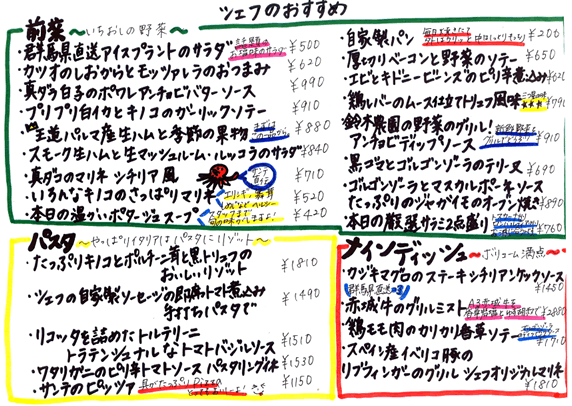 シェフのおすすめ
前菜 ～いちおしの野菜～
・群馬県直送アイスプラントのサラダ ¥500
・カツオのしおからとモッツァレラのおつまみ ¥620
・真ダラ白子のポワレアンチョビバターソース ¥990
・プリプリ白イカとキノコのガーリックソテー ¥910
・王道パルマ産生ハムと季節の果物 ¥880
・スモーク生ハムと生マッシュルーム・ルッコラのサラダ ¥840
・真ダコのマリネ シチリア風 ¥710
・いろんなキノコのさっぱりマリネ ¥520
・本日の温かいポタージュスープ ¥420
・自家製パン ¥206
・厚切りベーコンと野菜のソテー ¥650
・エビとキドニービーンズのピリ辛煮込み ¥620
・鶏レバーのムース仕立てトリュフ風味 ¥790
・鈴木農園の野菜のグリル!
アンチョビディップソース ¥910
・黒ゴマとゴルゴンゾーラのテリーヌ ¥690
・ゴルゴンゾーラとマスカルポーネソース
たっぷりのジャガイモのオーブン焼き ¥890
・本日の厳選サラミ2点盛り ¥760
パスタ ～やっぱりイタリアはパスタにリゾット～
・たっぷりキノコとポルチーニ茸と黒トリュフの
おいしいリゾット ¥1810
・シェフの自家製ソーセージの即席トマト煮込み
手打ちパスタで ¥1490
・リコッタを詰めたトルテリーニ
トラディショナルなトマトバジルソース ¥1510
・ワタリガニのピリ辛トマトソース パスタリングイネ ¥1530
・サンテのピッツァ 具がたっぷりPizza ¥1150
メインディッシュ ～ボリューム満点～
・クジキマグロのステーキシチリアンケッカソース ¥1450
群馬県直送
・赤城牛のグリルミスト ¥2880
・鶏モモ肉のカリカリ香草ソテー ¥1710
・スペイン産イベリコ豚の
リブフィンガーのグリル シェフオリジナルマリネ ¥1810